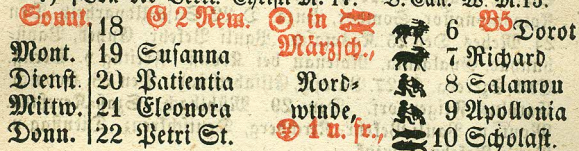 Sonnt. 18 G 2 Rem. in 6 B5 Dorot
Mont. 19 Susanna Märzsch., 7 Richard
Dienst. 20 Patientia Nord- 8 Salamon
Mittw. 21 Eleonora winde, 9 Apollonia
Donn. 22 Petri St. 1 u. fr., 10 Scholast.